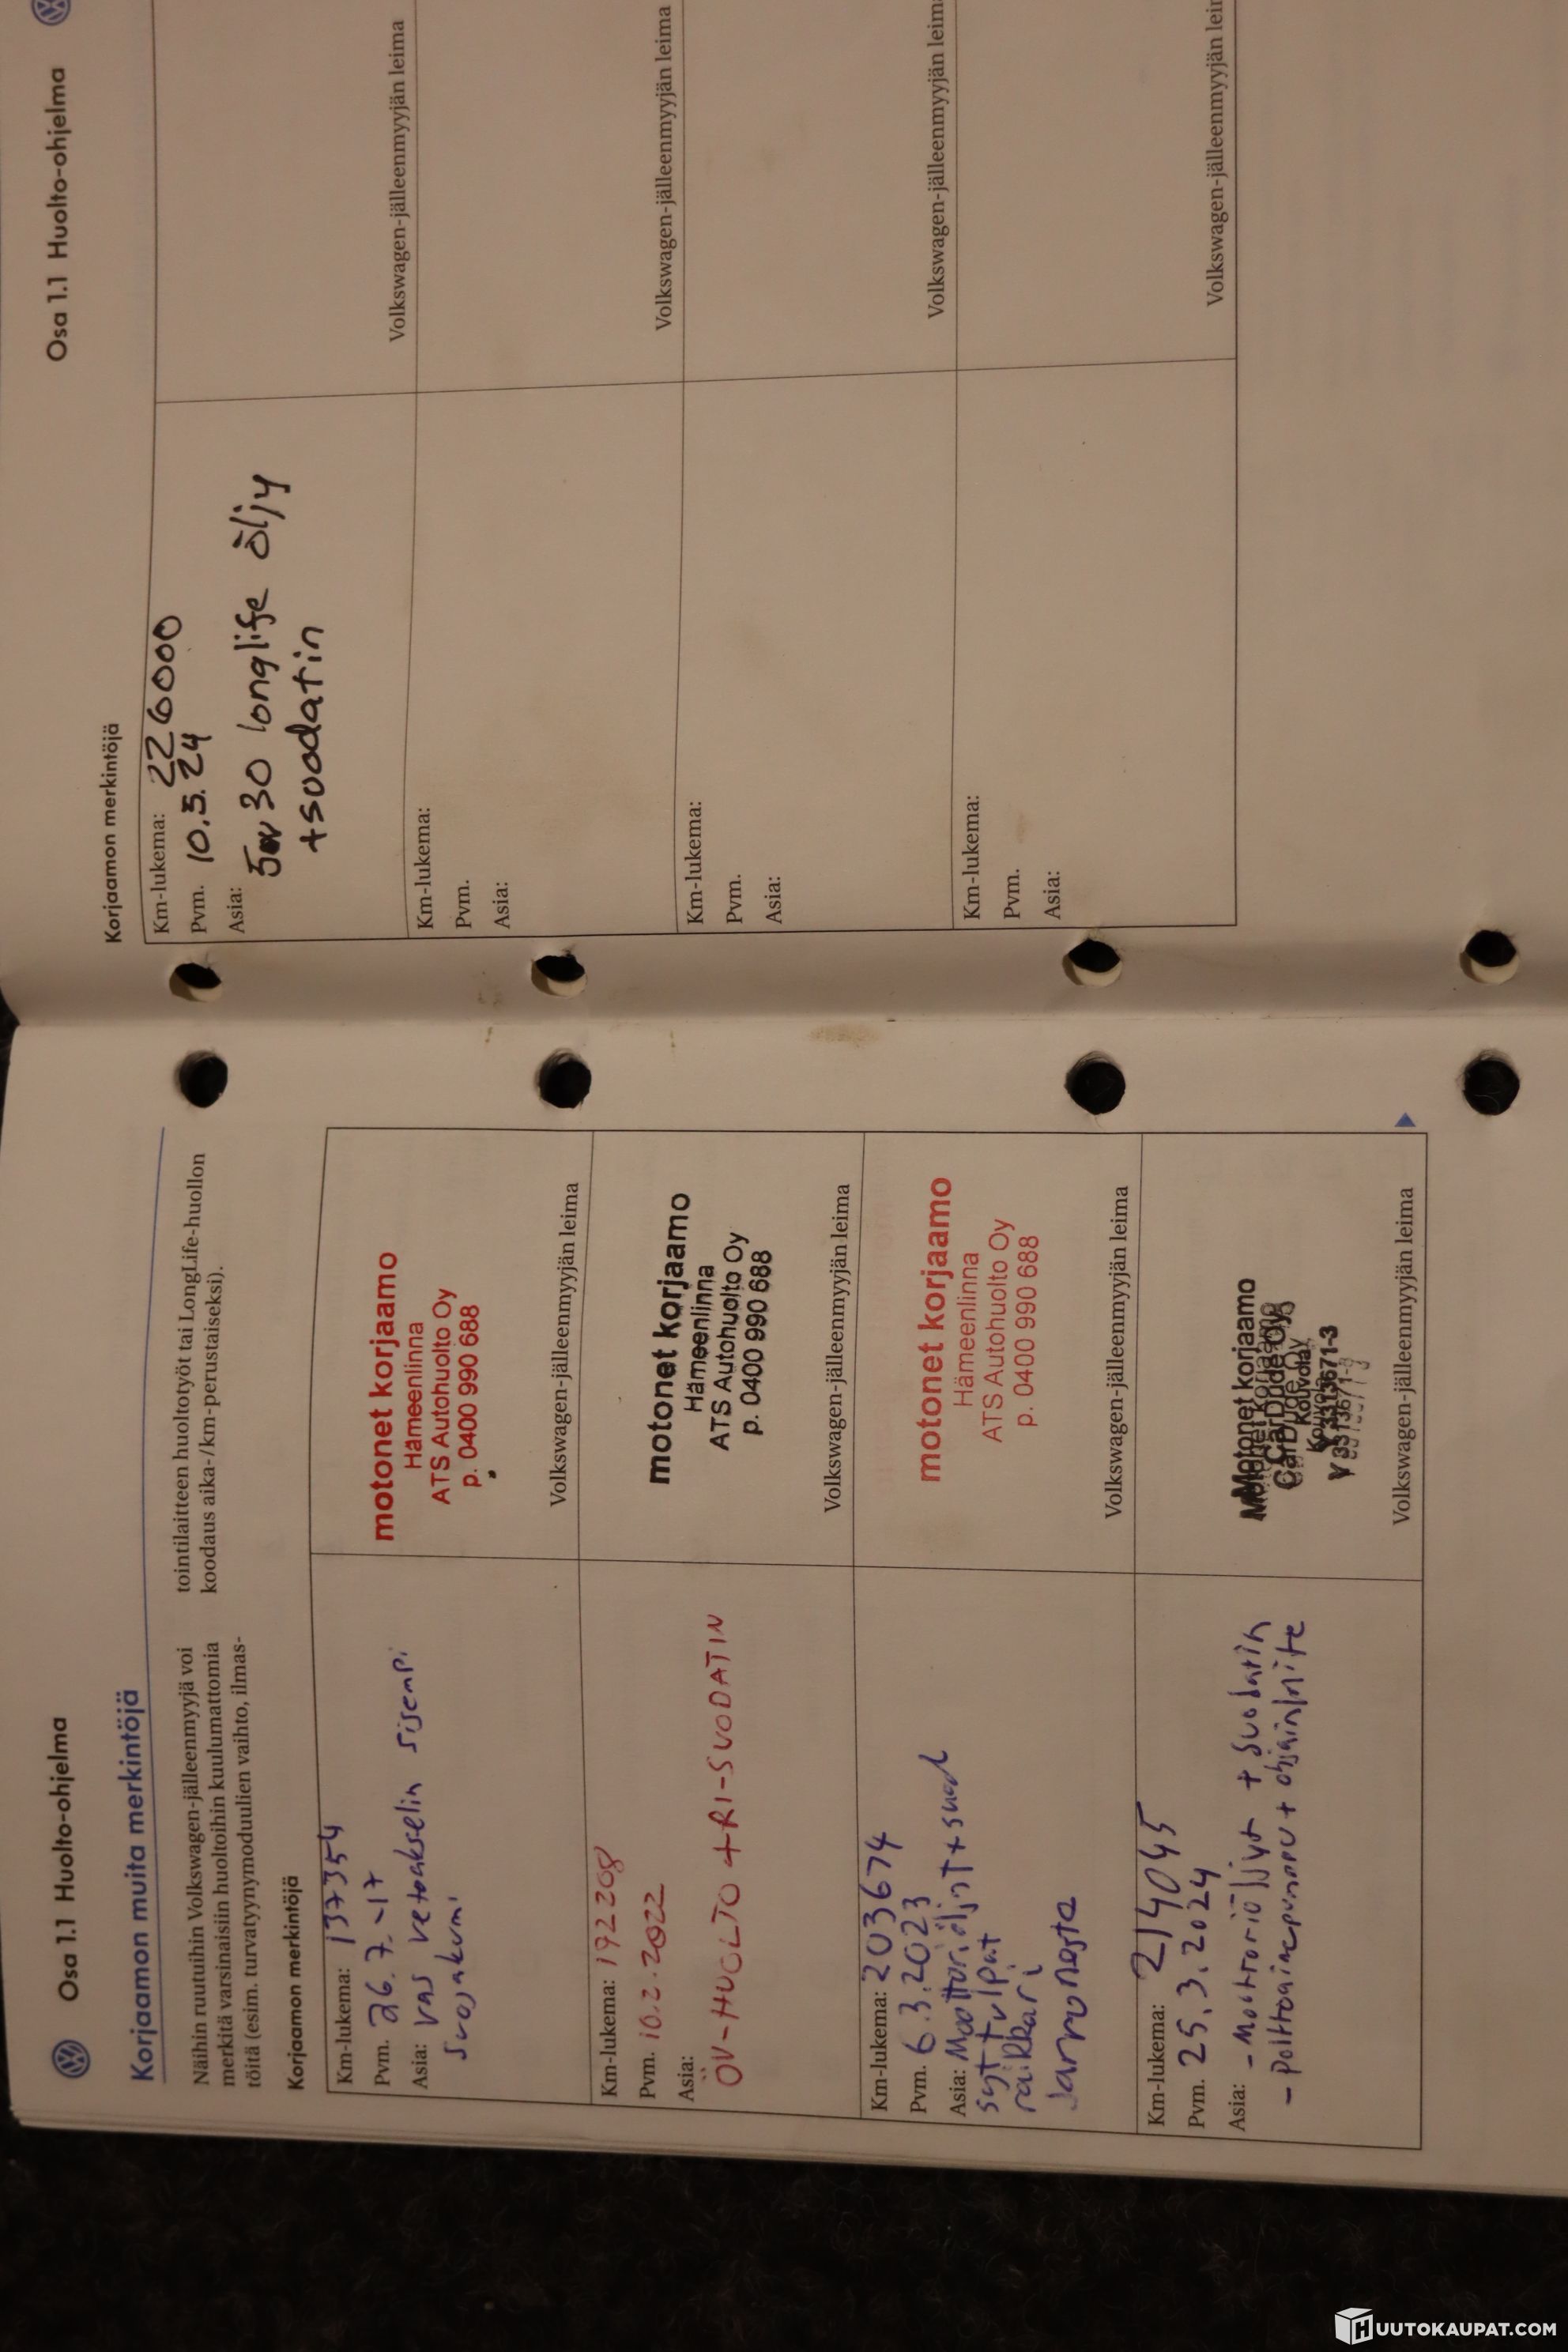 Osa 1.1 Huolto-ohjelma
Korjaamon muita merkintöjä
Näihin ruutuihin Volkswagen-jälleenmyyjä voi
merkitä varsinaisiin huoltoihin kuulumattomia
töitä (esim. turvatyynymoduulien vaihto, ilmas-
tointilaitteen huoltotyöt tai LongLife-huollon
koodaus aika-/km-perustaiseksi).
Korjaamon merkintöjä
Km-lukema: 137354
Pvm. 26.7.-17
Asia: vas vetoakselin sisempi
suojakumi
motonet korjaamo
Hämeenlinna
ATS Autohuolto Oy
p. 0400 990 688
Volkswagen-jälleenmyyjän leima
Km-lukema: 192208
Pvm. 10.2.2022
Asia:
ÖV-HUOLTO +RI-SUODATIN
motonet korjaamo
Hämeenlinna
ATS Autohuolto Oy
p. 0400 990 688
Volkswagen-jälleenmyyjän leima
Km-lukema: 203674
Pvm. 6.3.2023
Asia: Moottoriöljyt+suod
syt tulpat
raikkari
Jarruneste
motonet korjaamo
Hämeenlinna
ATS Autohuolto Oy
p. 0400 990 688
Volkswagen-jälleenmyyjän leima
Km-lukema: 214045
Pvm. 25.3.2024
Asia: - Moottoriöljyt + suodatin
- polttoainepumppu + ohjainlaite
Motonet korjaamo
CarDude Oy
Kouvola
Y 3313671-3
Volkswagen-jälleenmyyjän leima
Osa 1.1 Huolto-ohjelma
Korjaamon merkintöjä
Km-lukema: 226000
Pvm. 10.5.24
Asia:
5w30 longlife öljy
+suodatin
Volkswagen-jälleenmyyjän leima
Km-lukema:
Pvm.
Asia:
Volkswagen-jälleenmyyjän leima
Km-lukema:
Pvm.
Asia:
Volkswagen-jälleenmyyjän leima
Km-lukema:
Pvm.
Asia:
Volkswagen-jälleenmyyjän leima
HUUTOKAUPAT.COM